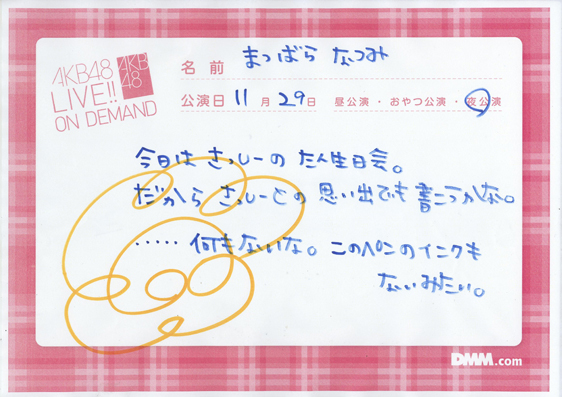 AKB48
LIVE!!
ON DEMAND
AKB
48
名前 まつばら なつみ
公演日 11月29日 昼公演・おやつ公演・夜公演
今日は さっしーの たん生日会。
だから さっしーとの 思い出でも 書こうかな。
‥‥‥何もないな。このペンのインクも
ないみたい。
DMM.com